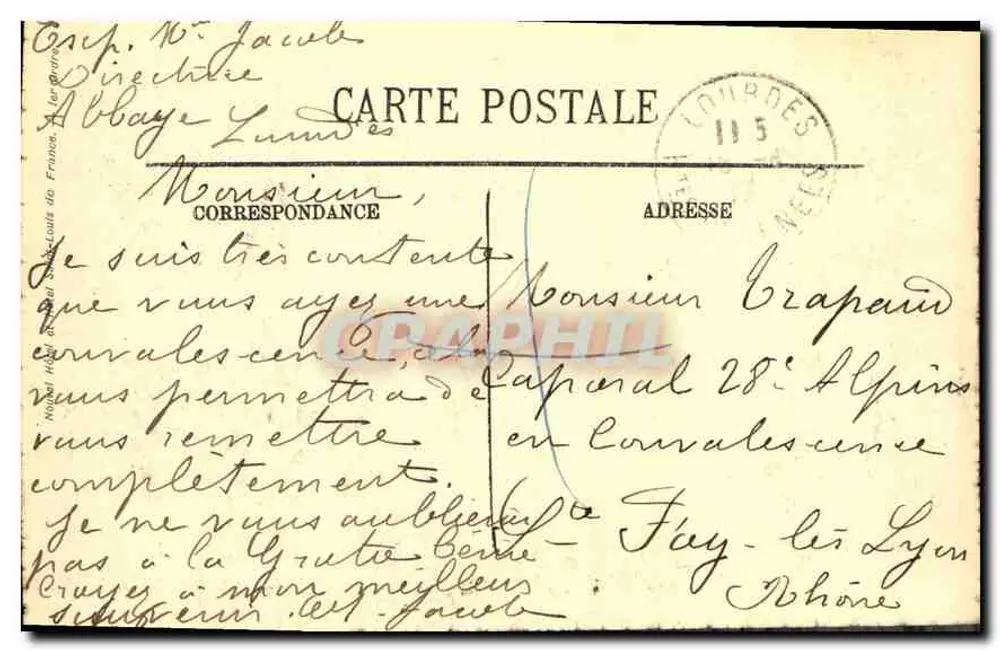 Exp. Me Jacob
Directrice
Abbaye Lourdes
CARTE POSTALE
LOURDES
11 5
Monsieur,
CORRESPONDANCE
Je suis très contente
que vous ayez une
convalescence, cela
vous permettra de
vous remettre
complètement.
Je ne vous oublierai
pas à la Grotte bénie
Croyez à mon meilleur
souvenir. M Jacob
ADRESSE
Monsieur Trapaud
Caporal 28e Alpins
en Convalescence
Ste Foy-lès Lyon
Rhône
Nouvel Hôtel et Hôtel Saint-Louis de France, 1er Ordre
CRAPHIL